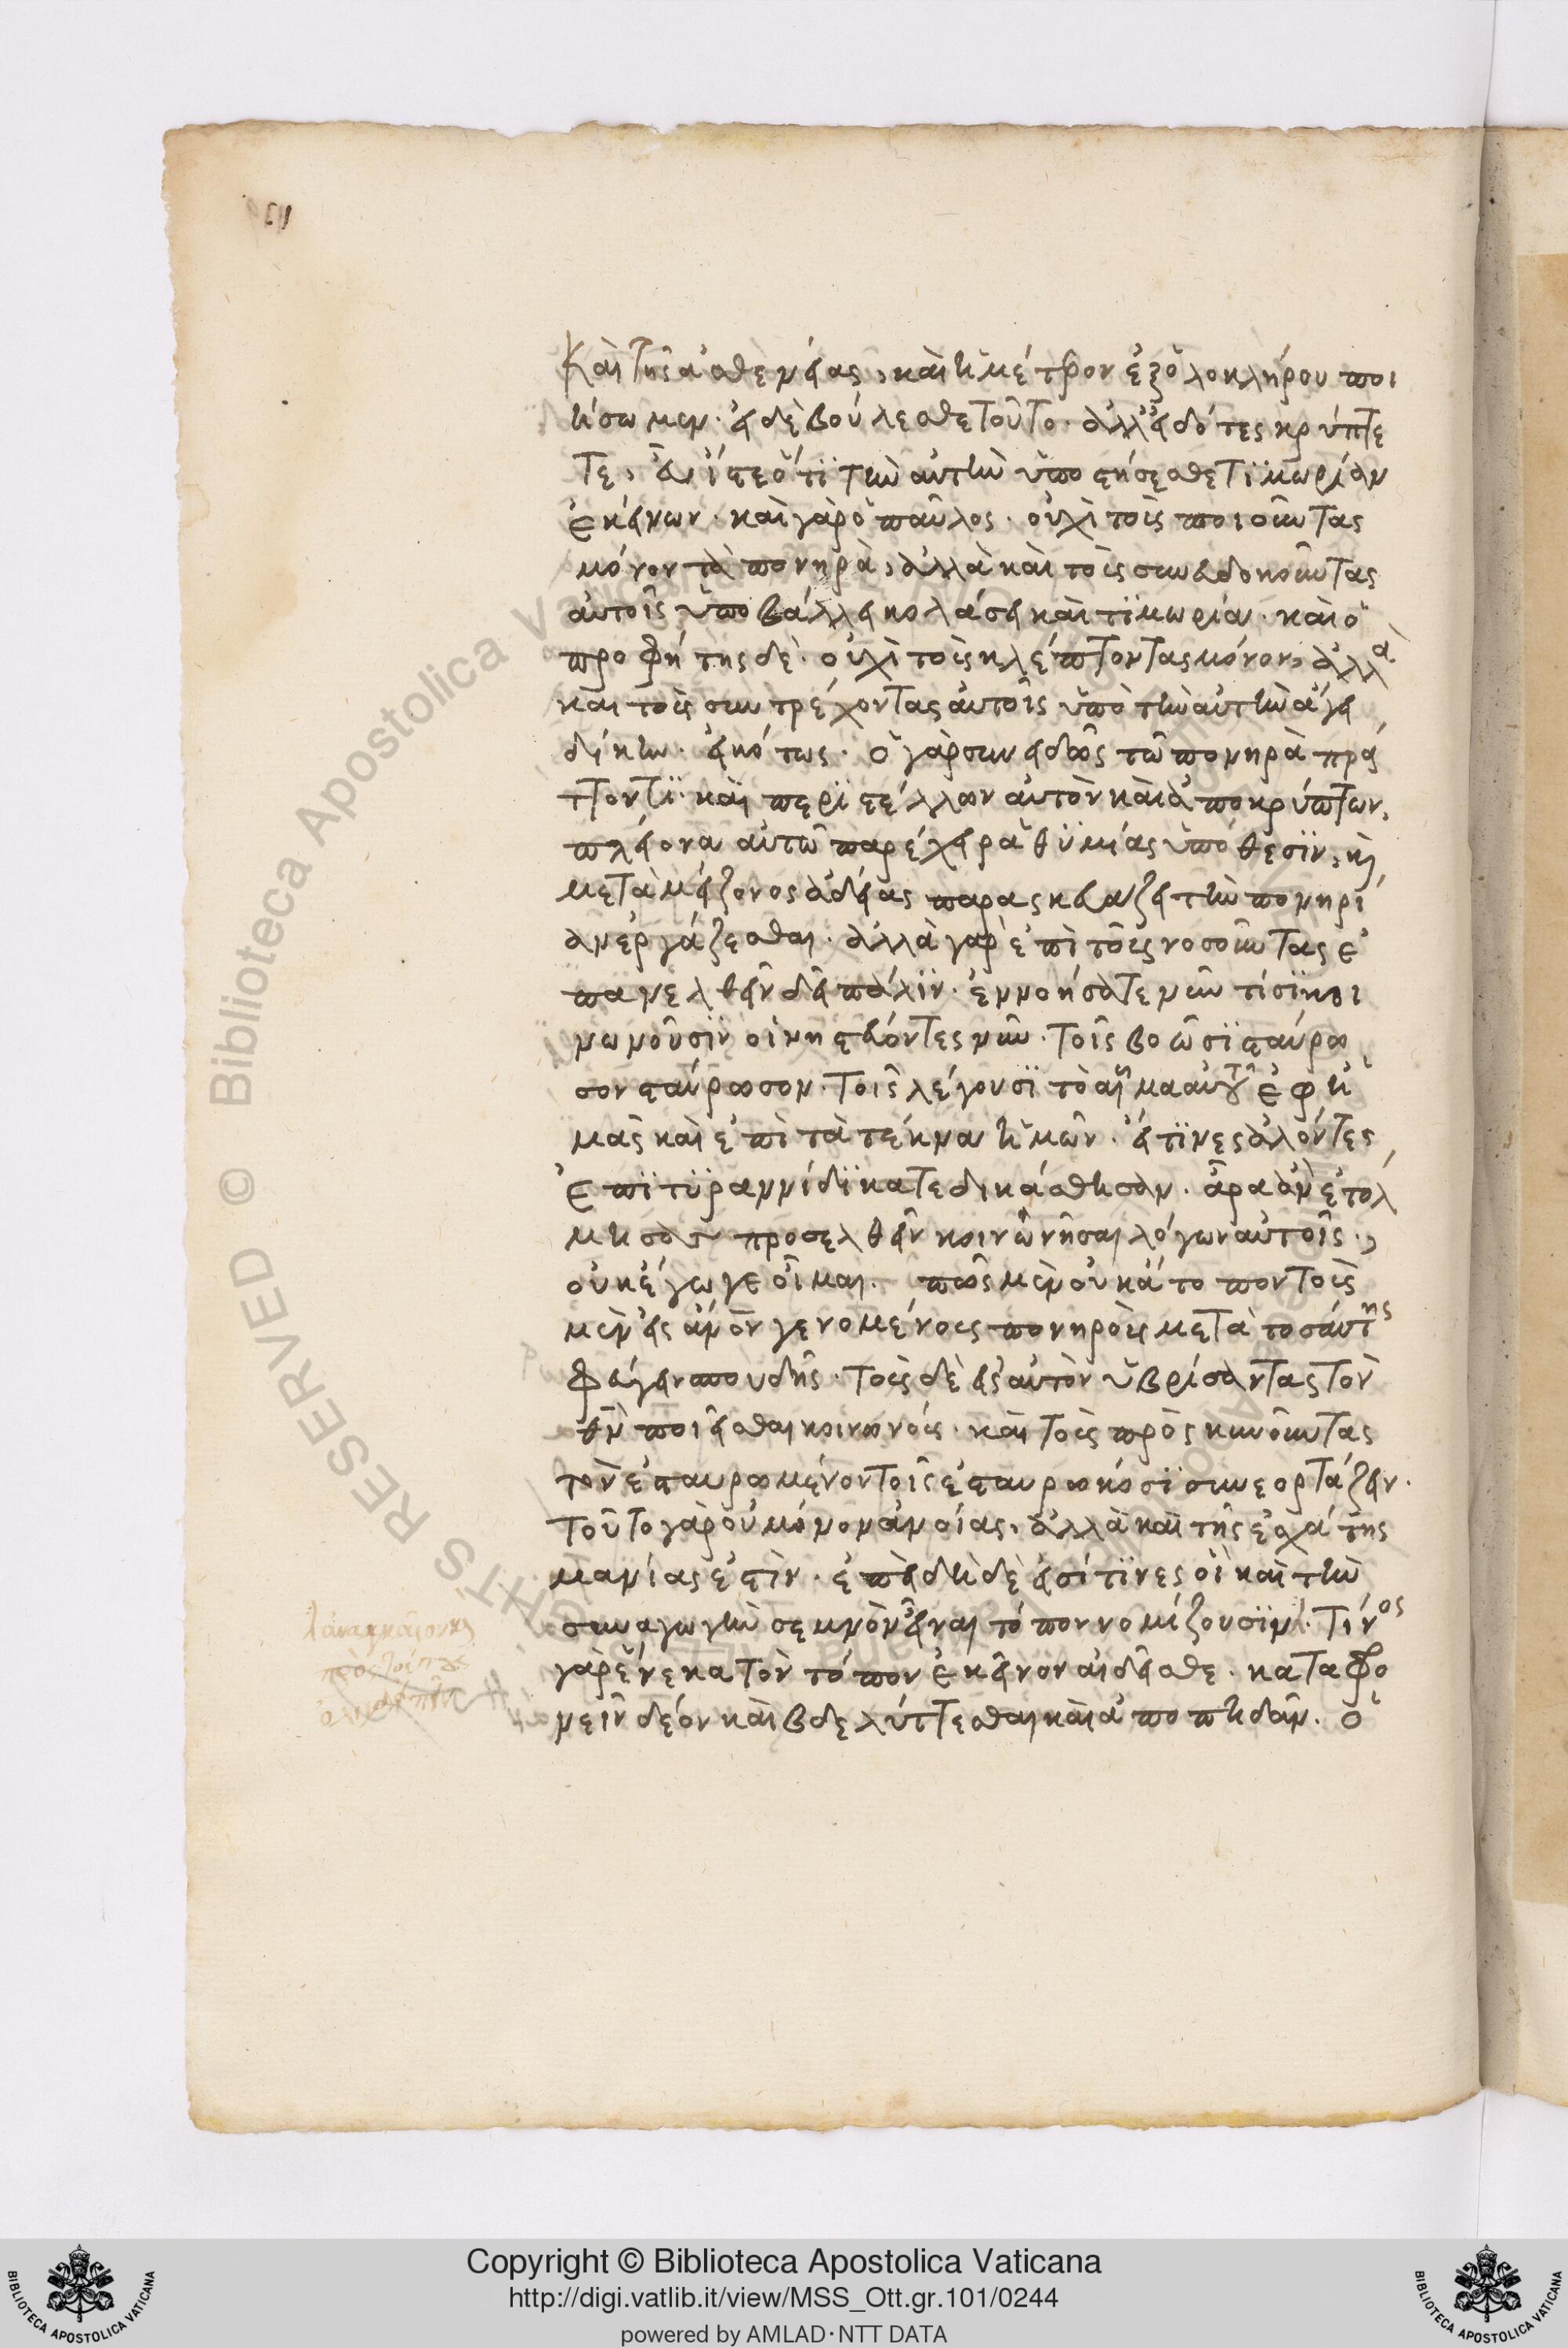 Καὶ τῆς ἀσθενείας, καὶ ἡμέτερον ἐξολοκλήρου ποι
ήσωμεν· εἰ δὲ βούλεσθε τοῦτο· ἀλλ' εἰδότες κρύπτε
τε, εὖ ἴστε ὅτι τὴν αὐτὴν ὑποστήσεσθε τιμωρίαν
ἐκείνων· καὶ γὰρ ὁ παῦλος· οὐχὶ τοὺς ποιοῦντας
μόνον τὰ πονηρὰ, ἀλλὰ καὶ τοὺς συνευδοκοῦντας
αὐτοῖς ὑποβάλλει κολάσει καὶ τιμωρία· καὶ ὁ
προφήτης δὲ· οὐχὶ τοὺς κλέπτοντας μόνον, ἀλλὰ
καὶ τοὺς συντρέχοντας αὐτοῖς ὑπὸ τὴν αὐτὴν ἄγει
δίκην· εἰκότως· ὁ γὰρ συνειδὼς τῶ πονηρὰ πρά
ττοντι καὶ περιστέλλων αὐτὸν καὶ ἀποκρύπτων,
πλείονα αὐτῶ παρέχει ῥαθυμίας ὑπόθεσιν, κὶ
μετὰ μείζονος ἀδείας παρασκευάζει τὴν πονηρί
αν ἐργάζεσθαι· ἀλλὰ γὰρ ἐπὶ τοὺς νοσοῦντας ἐ
πανελθεῖν δεῖ πάλιν· ἐννοήσατε νῦν τίσι κοι
νωνοῦσιν οἱ νηστεύοντες νῦν· τοῖς βοῶσι σταύρω
σον σταύρωσον· τοῖς λέγουσι τὸ αἷμα αὐτοῦ ἐφ ἡ
μᾶς καὶ ἐπὶ τὰ τέκνα ἡμῶν· εἴ τινες ἁλόντες
ἐπὶ τυραννίδι κατεδικάσθησαν· ἆρα ἂν ἐτόλ
μησαν προσελθεῖν κοινωνῆσαι λόγων αὐτοῖς·,
οὐκ ἔγωγε οἶμαι· πῶς μὲν οὐκ ἄτοπον τοὺς
μὲν εἰς ἄνον γενομένους πονηροὺς μετὰ τοσαύτης
φεύγειν σπουδῆς· τοὺς δὲ εἰς αὐτὸν ὑβρίσαντας τὸν
θν ποιεῖσθαι κοινωνούς· καὶ τοὺς προσκυνοῦντας
τὸν ἐσταυρωμένον τοῖς ἐσταυρωκόσι συνεορτάζειν·
τοῦτο γὰρ οὐ μόνον ἀνοίας, ἀλλὰ καὶ τῆς ἐσχάτης
μανίας ἐστὶν· ἐπειδὴ δὲ εἰσί τινες οἳ καὶ τὴν
συναγωγὴν σεμνὸν εἶναι τόπον νομίζουσιν· τίνος
γὰρ ἕνεκα τὸν τόπον ἐκεῖνον αἰδεῖσθε· καταφρο
νεῖν δέον καὶ βδελύττεσθαι καὶ ἀποπηδᾶν· ὁ
Copyright © Biblioteca Apostolica Vaticana
http://digi.vatlib.it/view/MSS_Ott.gr.101/0244
powered by AMLAD·NTT DATA